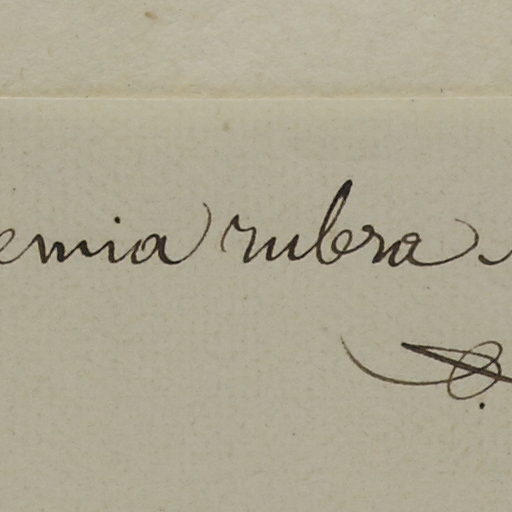 emia rubra